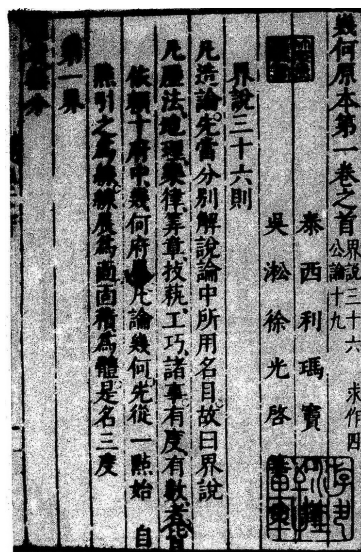 幾何原本第一卷之首 界說三十六 求作四
公論十九
泰西利瑪竇
吳淞徐光啓
界說三十六則
凡造論先當分別解說論中所用名目故曰界說
凡歷法地理樂律筭章技藝工巧諸事有度有數者皆
依賴十府中幾何府凡論幾何先從一點始 自
點引之爲線線展爲面面積爲體是名三度
第一界